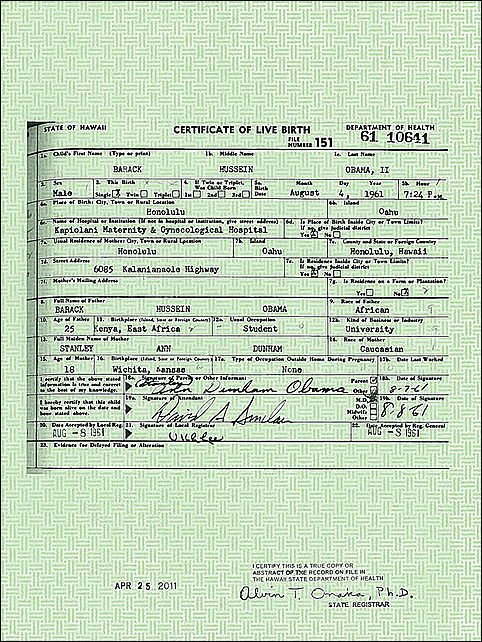 STATE OF HAWAII CERTIFICATE OF LIVE BIRTH DEPARTMENT OF HEALTH
FILE NUMBER 151 61 10641
1a. Child's First Name (Type or print) 1b. Middle Name 1c. Last Name
BARACK HUSSEIN OBAMA, II
2. Sex 3. This Birth 4. If Twin or Triplet, Was Child Born 5a. Birth Date Month Day Year 5b. Hour
Male Single X Twin Triplet 1st 2nd 3rd August 4, 1961 7:24 P.M.
6a. Place of Birth: City, Town or Rural Location 6b. Island
Honolulu Oahu
6c. Name of Hospital or Institution (If not in hospital or institution, give street address) 6d. Is Place of Birth Inside City or Town Limits? If no, give judicial district
Kapiolani Maternity & Gynecological Hospital Yes X No
7a. Usual Residence of Mother: City, Town or Rural Location 7b. Island 7c. County and State or Foreign Country
Honolulu Oahu Honolulu, Hawaii
7d. Street Address 7e. Is Residence Inside City or Town Limits? If no, give judicial district
6085 Kalanianaole Highway Yes X No
7f. Mother's Mailing Address 7g. Is Residence on a Farm or Plantation?
Yes No X
8. Full Name of Father 9. Race of Father
BARACK HUSSEIN OBAMA African
10. Age of Father 11. Birthplace (Island, State or Foreign Country) 12a. Usual Occupation 12b. Kind of Business or Industry
25 Kenya, East Africa Student University
13. Full Maiden Name of Mother 14. Race of Mother
STANLEY ANN DUNHAM Caucasian
15. Age of Mother 16. Birthplace (Island, State or Foreign Country) 17a. Type of Occupation Outside Home During Pregnancy 17b. Date Last Worked
18 Wichita, Kansas None
I certify that the above stated information is true and correct to the best of my knowledge. 18a. Signature of Parent or Other Informant Parent Other 18b. Date of Signature
Dunham Obama 8-7-61
I hereby certify that this child was born alive on the date and hour stated above. 19a. Signature of Attendant M.D. D.O. Midwife Other 19b. Date of Signature
David A Sinclair 8-8-61
20. Date Accepted by Local Reg. 21. Signature of Local Registrar 22. Date Accepted by Reg. General
AUG -8 1961 U K Lee AUG -8 1961
23. Evidence for Delayed Filing or Alteration
I CERTIFY THIS IS A TRUE COPY OR
ABSTRACT OF THE RECORD ON FILE IN
THE HAWAII STATE DEPARTMENT OF HEALTH
APR 25 2011
Alvin T. Onaka, Ph.D.
STATE REGISTRAR